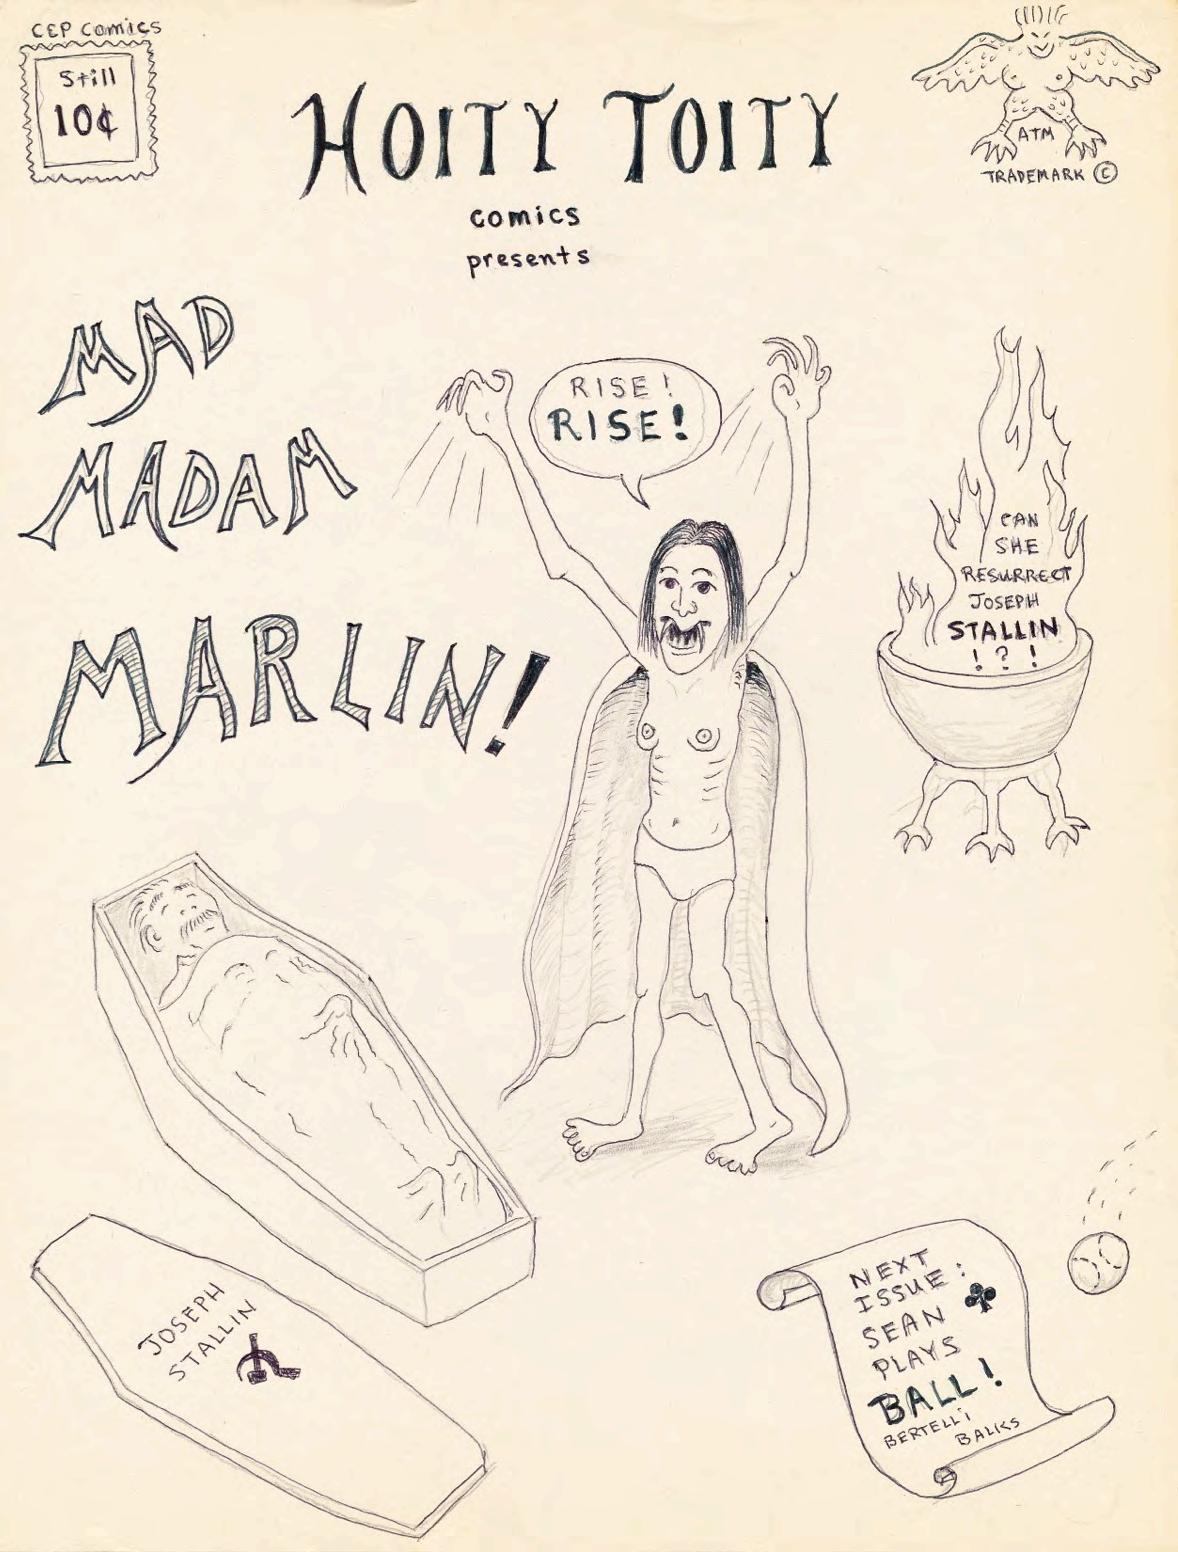 CEP Comics
Still
10¢
HOITY TOITY
comics
presents
ATM
TRADEMARK ©
MAD
MADAM
MARLIN!
RISE!
RISE!
CAN
SHE
RESURRECT
JOSEPH
STALLIN
! ? !
JOSEPH
STALLIN
NEXT
ISSUE:
SEAN
PLAYS
BALL!
BERTELLI
BALKS